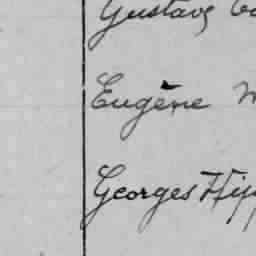 Gustave
Eugène
Georges Hipp